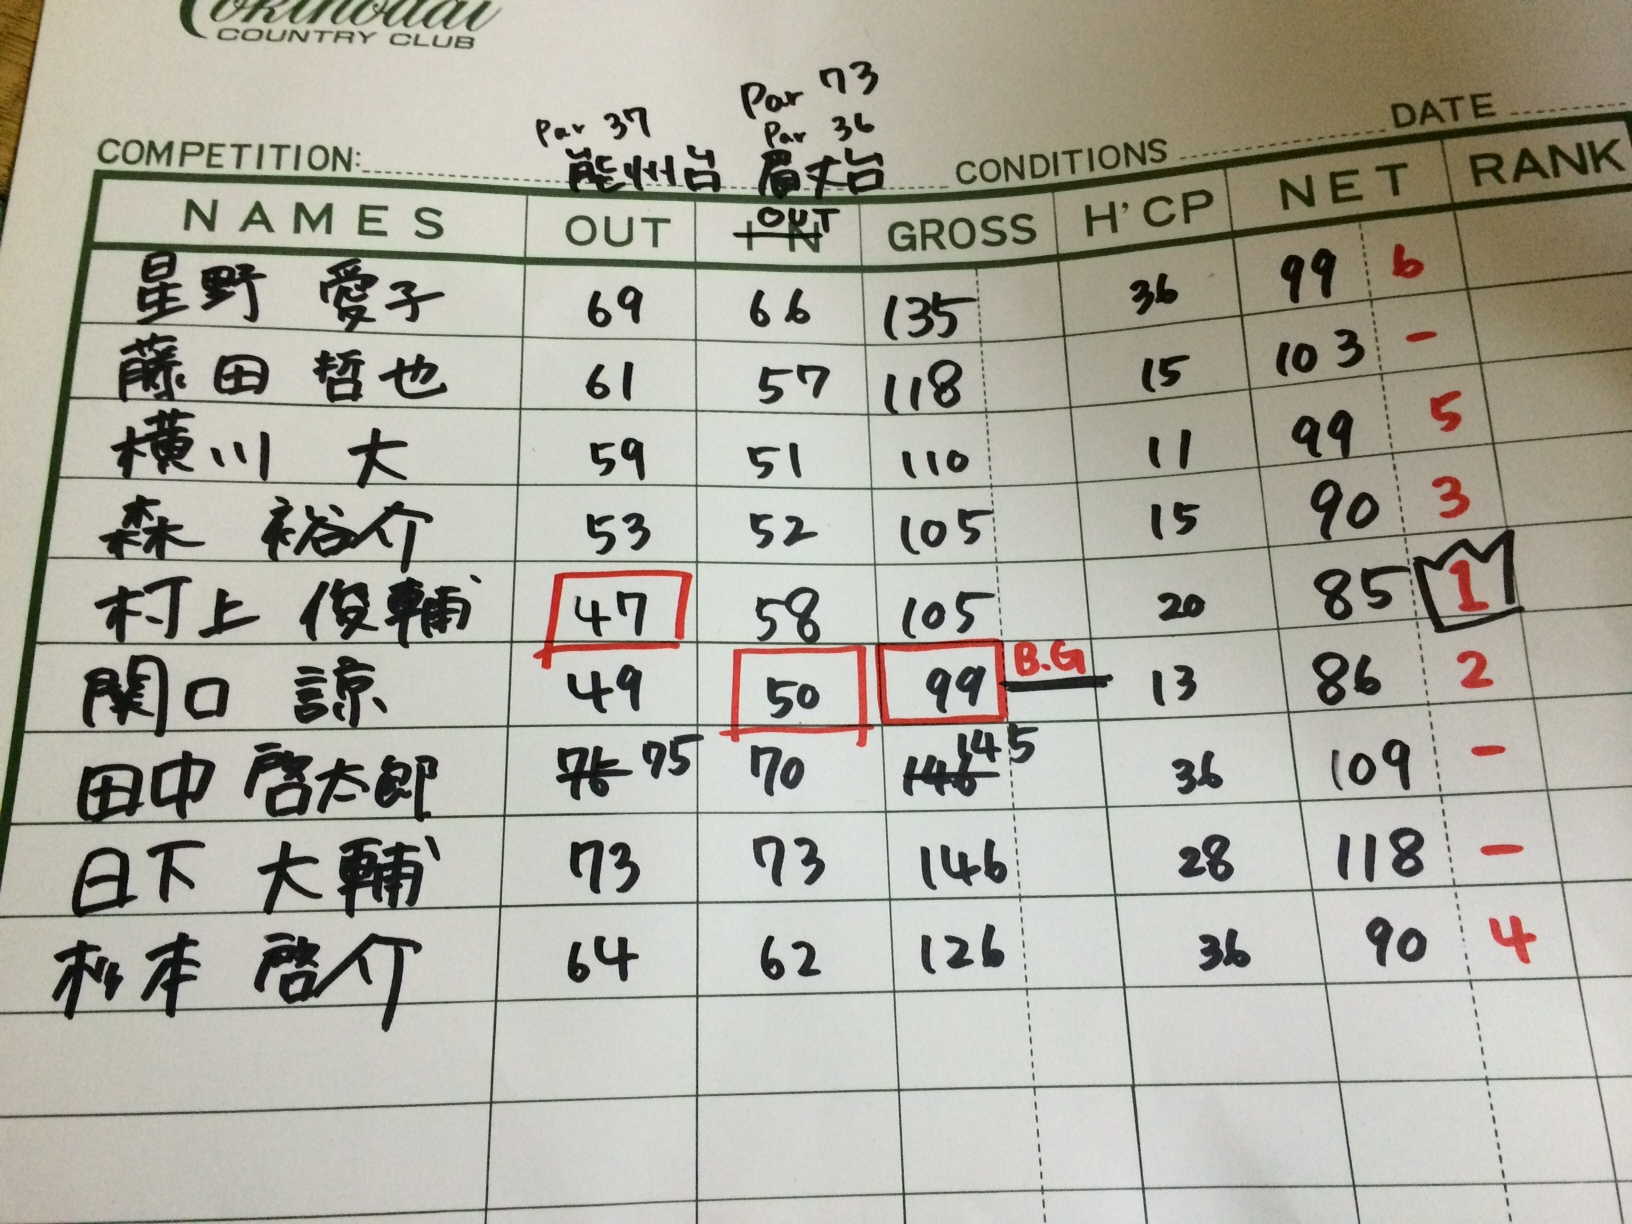 COUNTRY CLUB
Par 73
Par 37 Par 36
COMPETITION: 能州台 眉丈台 CONDITIONS DATE
NAMES OUT IN OUT GROSS H'CP NET RANK
星野 愛子 69 66 135 36 99 6
藤田 哲也 61 57 118 15 103 -
横川 大 59 51 110 11 99 5
森 裕介 53 52 105 15 90 3
村上 俊輔 47 58 105 20 85 1
関口 諒 49 50 99 B.G 13 86 2
田中 啓太郎 76 75 70 146 145 36 109 -
日下 大輔 73 73 146 28 118 -
松本 啓介 64 62 126 36 90 4